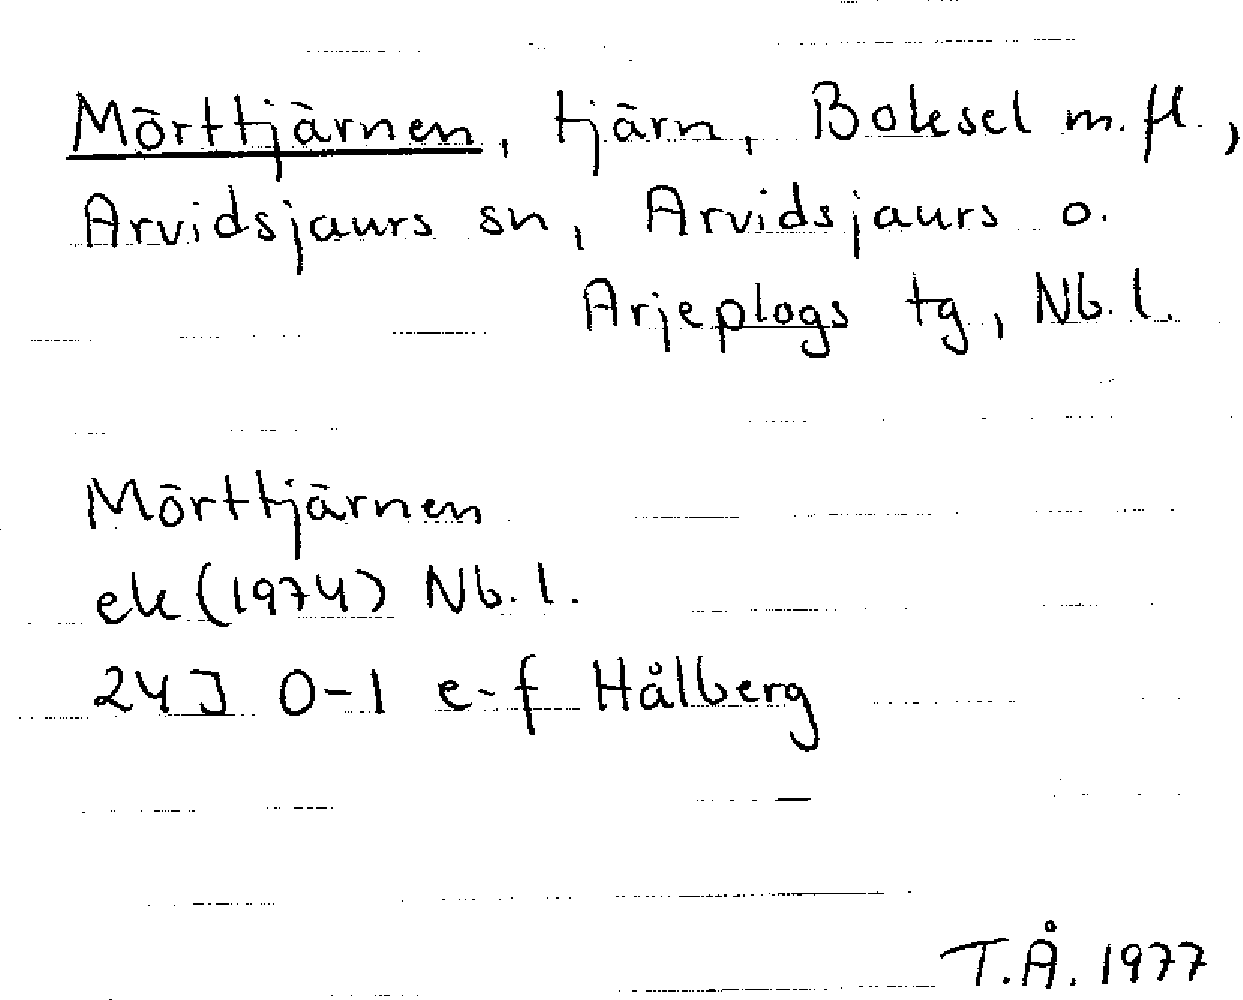 Mörttjärnen, tjärn, Boksel m.fl.,
Arvidsjaurs sn, Arvidsjaurs o.
Arjeplogs tg, Nb. l.
Mörttjärnen
ek (1974) Nb. l.
24J 0-1 e-f Hålberg
T.Å. 1977